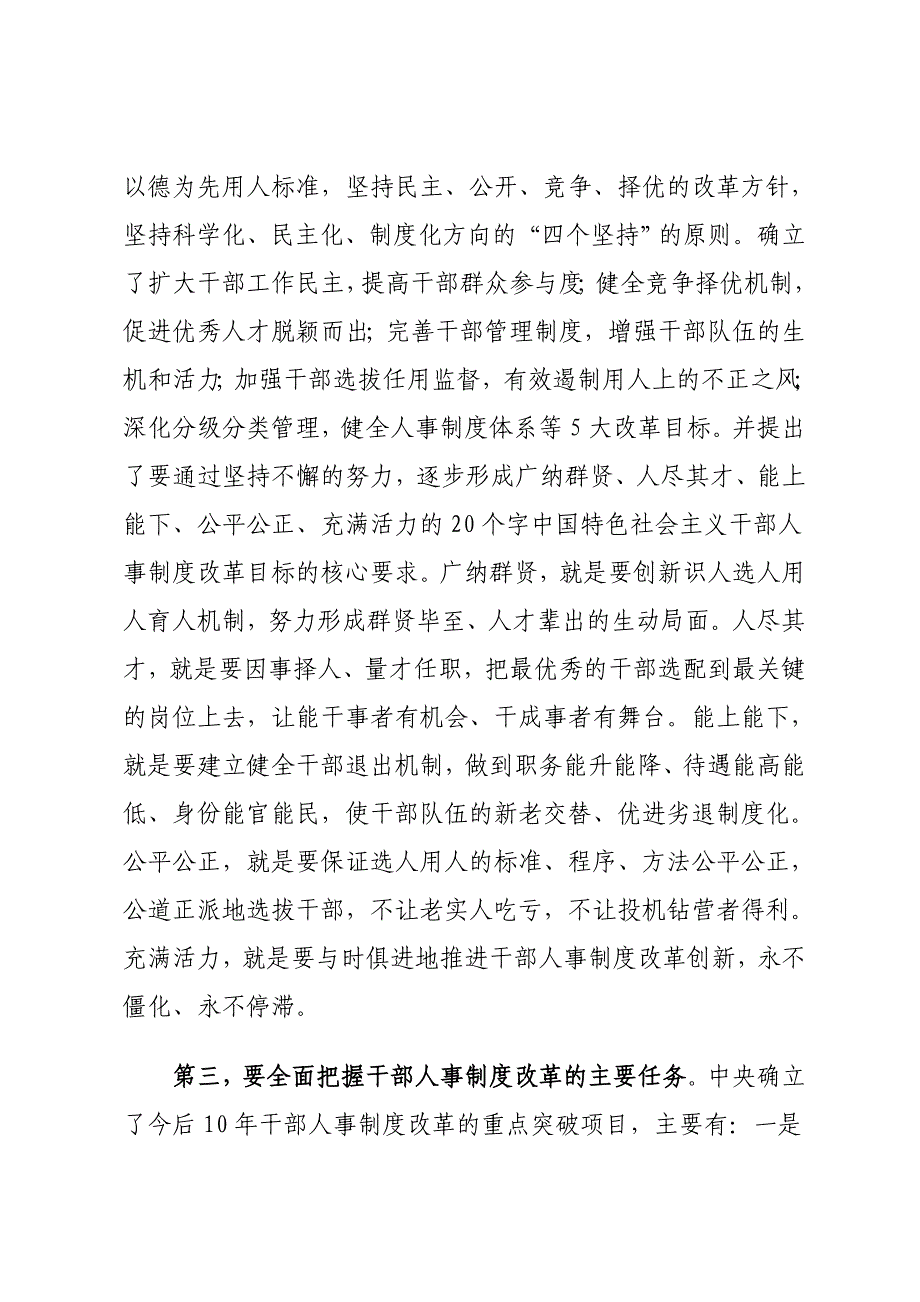 以德为先用人标准，坚持民主、公开、竞争、择优的改革方针，
坚持科学化、民主化、制度化方向的“四个坚持”的原则。确立
了扩大干部工作民主，提高干部群众参与度；健全竞争择优机制，
促进优秀人才脱颖而出；完善干部管理制度，增强干部队伍的生
机和活力；加强干部选拔任用监督，有效遏制用人上的不正之风；
深化分级分类管理，健全人事制度体系等 5 大改革目标。并提出
了要通过坚持不懈的努力，逐步形成广纳群贤、人尽其才、能上
能下、公平公正、充满活力的 20 个字中国特色社会主义干部人
事制度改革目标的核心要求。广纳群贤，就是要创新识人选人用
人育人机制，努力形成群贤毕至、人才辈出的生动局面。人尽其
才，就是要因事择人、量才任职，把最优秀的干部选配到最关键
的岗位上去，让能干事者有机会、干成事者有舞台。能上能下，
就是要建立健全干部退出机制，做到职务能升能降、待遇能高能
低、身份能官能民，使干部队伍的新老交替、优进劣退制度化。
公平公正，就是要保证选人用人的标准、程序、方法公平公正，
公道正派地选拔干部，不让老实人吃亏，不让投机钻营者得利。
充满活力，就是要与时俱进地推进干部人事制度改革创新，永不
僵化、永不停滞。
第三，要全面把握干部人事制度改革的主要任务。中央确立
了今后 10 年干部人事制度改革的重点突破项目，主要有：一是